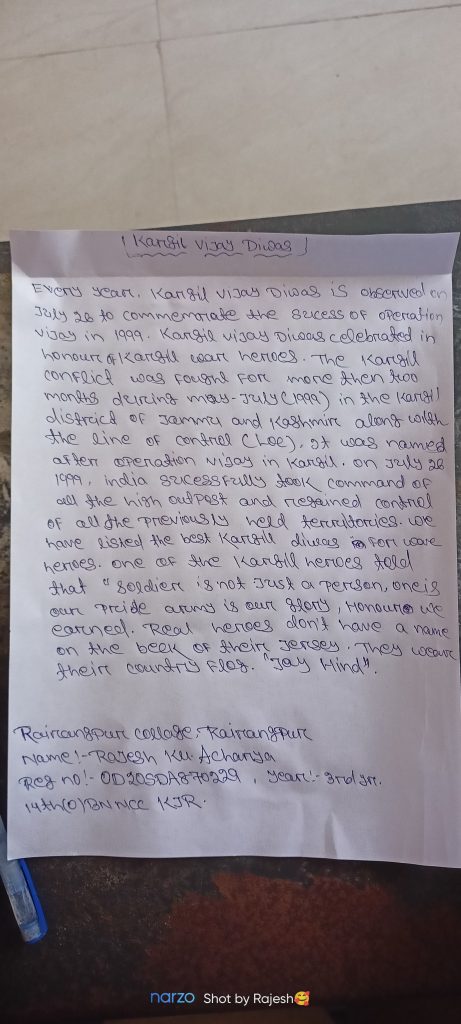 [Kargil Vijay Diwas]
Every year, Kargil Vijay Diwas is observed on
July 26 to commemorate the sucess of operation
vijay in 1999. Kargil vijay Diwas celebrated in
honour of Kargil war heroes. The Kargil
conflict was fought for more then two
months during may-July (1999) in the Kargil
district of Jammu and Kashmir along with
the line of control (Loc). It was named
after operation vijay in Kargil. on July 26
1999, india sucessfully took command of
all the high outpost and regained control
of all the previously held terrritories. we
have listed the best Kargil diwas for ware
heroes. one of the Kargil heroes told
that "soldier is not Just a person, one is
our pride army is our glory, Honour we
earned. Real heroes don't have a name
on the beck of their Jersey. They weare
their country flag. "Jay Hind".
Rairangpur collage, Rairangpur
Name:- Rajesh Ku. Acharya
Reg no:- OD20SDA870229, year:- 3rd yr.
14th(O)BN NCC KJR.
narzo Shot by Rajesh🥰